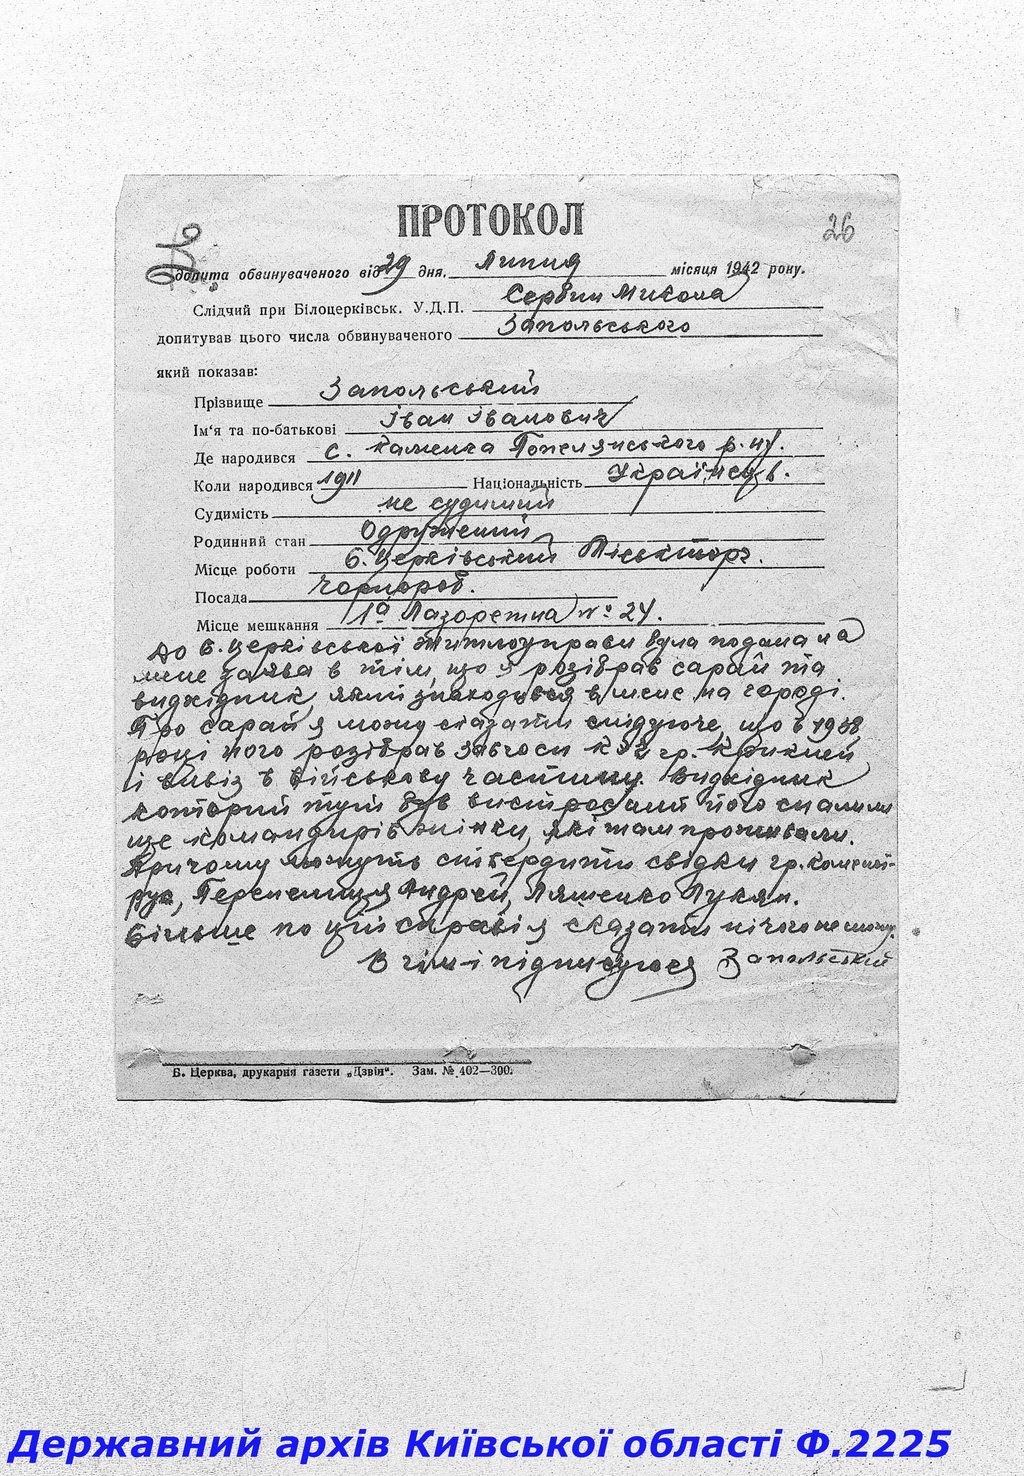 26
ПРОТОКОЛ
допита обвинуваченого від 29 дня. Липня місяця 1942 року.
Слідчий при Білоцерківськ. У.Д.П. Сербин Микола
допитував цього числа обвинуваченого Запольського
який показав:
Прізвище Запольський
Ім'я та по-батькові Іван Іванович
Де народився с. Каменка Попелянського р-ну.
Коли народився 1911 Національність Українець.
Судимість не судимий
Родинний стан Одружений
Місце роботи Б. Церківський Міськторг.
Посада Чорнороб.
Місце мешкання 1а Лазаретна № 24.
До Б. Церківської Житлоуправи була подана на
мене заява в тім, що я розібрав сарай та
видхідник, який знаходився в мене на городі.
Про сарай я можу сказати слідуюче, що в 1938
році його розібрав завгосп гр. Криклей
і вивіз в військову частину. Видхідник
которий тут був вистроєний його спалили
ще командирів жінки, які там проживали.
Причому можуть ствердити свідки гр.
Перепелиця Андрей, Ляшенко Лукян.
Більше по цій справі я сказати нічого не можу.
В чім і підписуюся Запольський
Б. Церква, друкарня газети „Дзвін“. Зам. № 402—300.
Державний архів Київської області Ф.2225